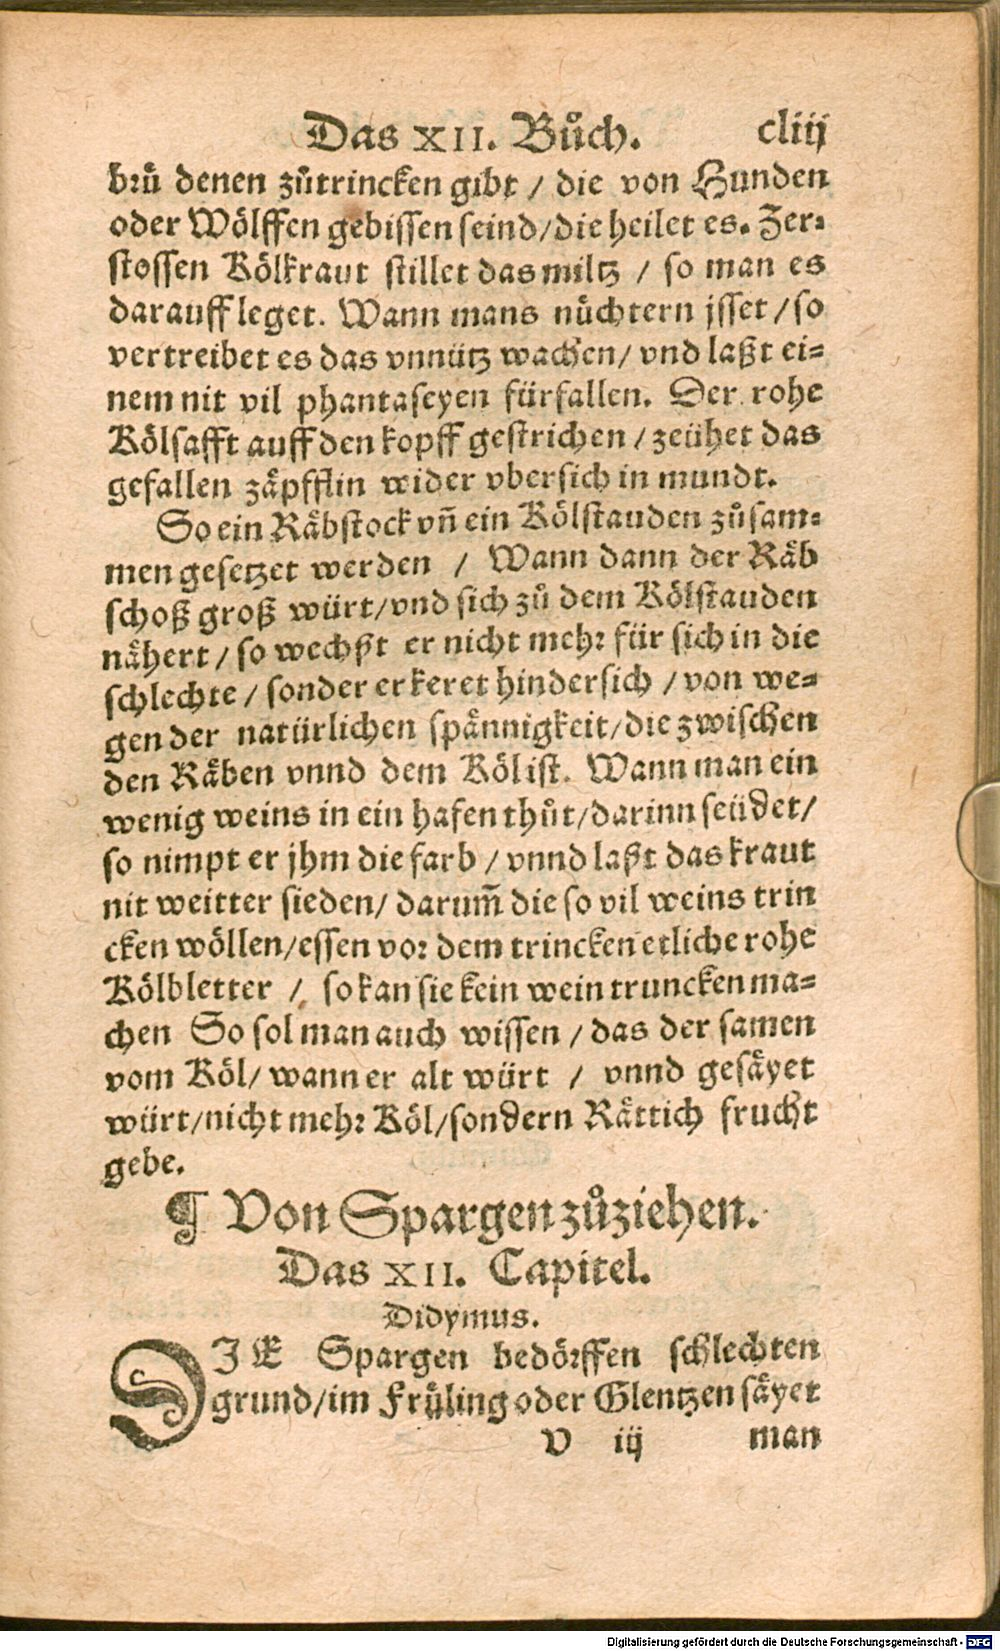 Das XII. Bůch. cliij
brů denen zůtrincken gibt / die von Hunden
oder Wölffen gebissen seind/die heilet es. Zer-
stossen Kölkraut stillet das miltz / so man es
darauff leget. Wann mans nüchtern jsset / so
vertreibet es das vnnütz wachen/ vnd laßt ei-
nem nit vil phantaseyen fürfallen. Der rohe
Kölsafft auff den kopff gestrichen / zeühet das
gefallen zäpfflin wider vbersich in mundt.
So ein Räbstock vn̄ ein Kölstauden zůsam-
men gesetzet werden / Wann dann der Räb
schoß groß würt/vnd sich zů dem Kölstauden
nähert / so wechßt er nicht mehr für sich in die
schlechte / sonder er keret hindersich / von we-
gen der natürlichen spännigkeit/die zwischen
den Räben vnnd dem Köl ist. Wann man ein
wenig weins in ein hafen thůt/darinn seüdet/
so nimpt er jhm die farb / vnnd laßt das kraut
nit weitter sieden/ darum̄ die so vil weins trin
cken wöllen/essen vor dem trincken etliche rohe
Kölbletter / so kan sie kein wein truncken ma-
chen So sol man auch wissen / das der samen
vom Köl/ wann er alt würt / vnnd gesäyet
würt/nicht mehr Köl/sondern Rättich frucht
gebe.
¶ Von Spargen zůziehen.
Das XII. Capitel.
Didymus.
DIE Spargen bedörffen schlechten
grund/im Früling oder Glentzen säyet
V iij man
Digitalisierung gefördert durch die Deutsche Forschungsgemeinschaft - DFG